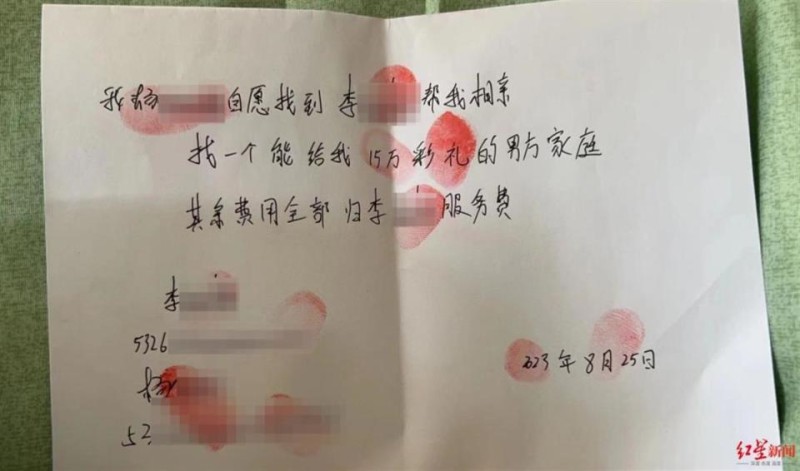 我杨 自愿找到李 帮我相亲
找一个能给我15万彩礼的男方家庭
其余费用全部归李 服务费
李
5326
杨
52
2023年8月25日
红星新闻